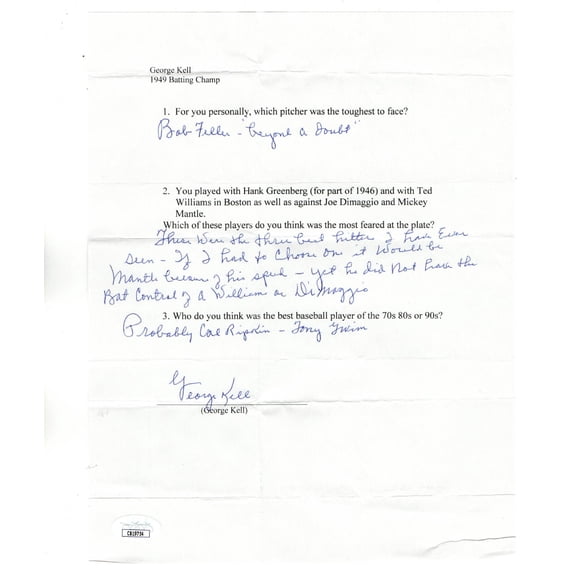 George Kell
1949 Batting Champ
1. For you personally, which pitcher was the toughest to face?
Bob Feller - "beyond a Doubt"
2. You played with Hank Greenberg (for part of 1946) and with Ted
Williams in Boston as well as against Joe Dimaggio and Mickey
Mantle.
Which of these players do you think was the most feared at the plate?
These Were the three best hitters I have Ever
seen - If I had to Choose one it Would be
Mantle because of his speed - yet he did Not have the
Bat Control of a William or DiMaggio
3. Who do you think was the best baseball player of the 70s 80s or 90s?
Probably Cal Ripkin - Tony Gwin
George Kell
(George Kell)